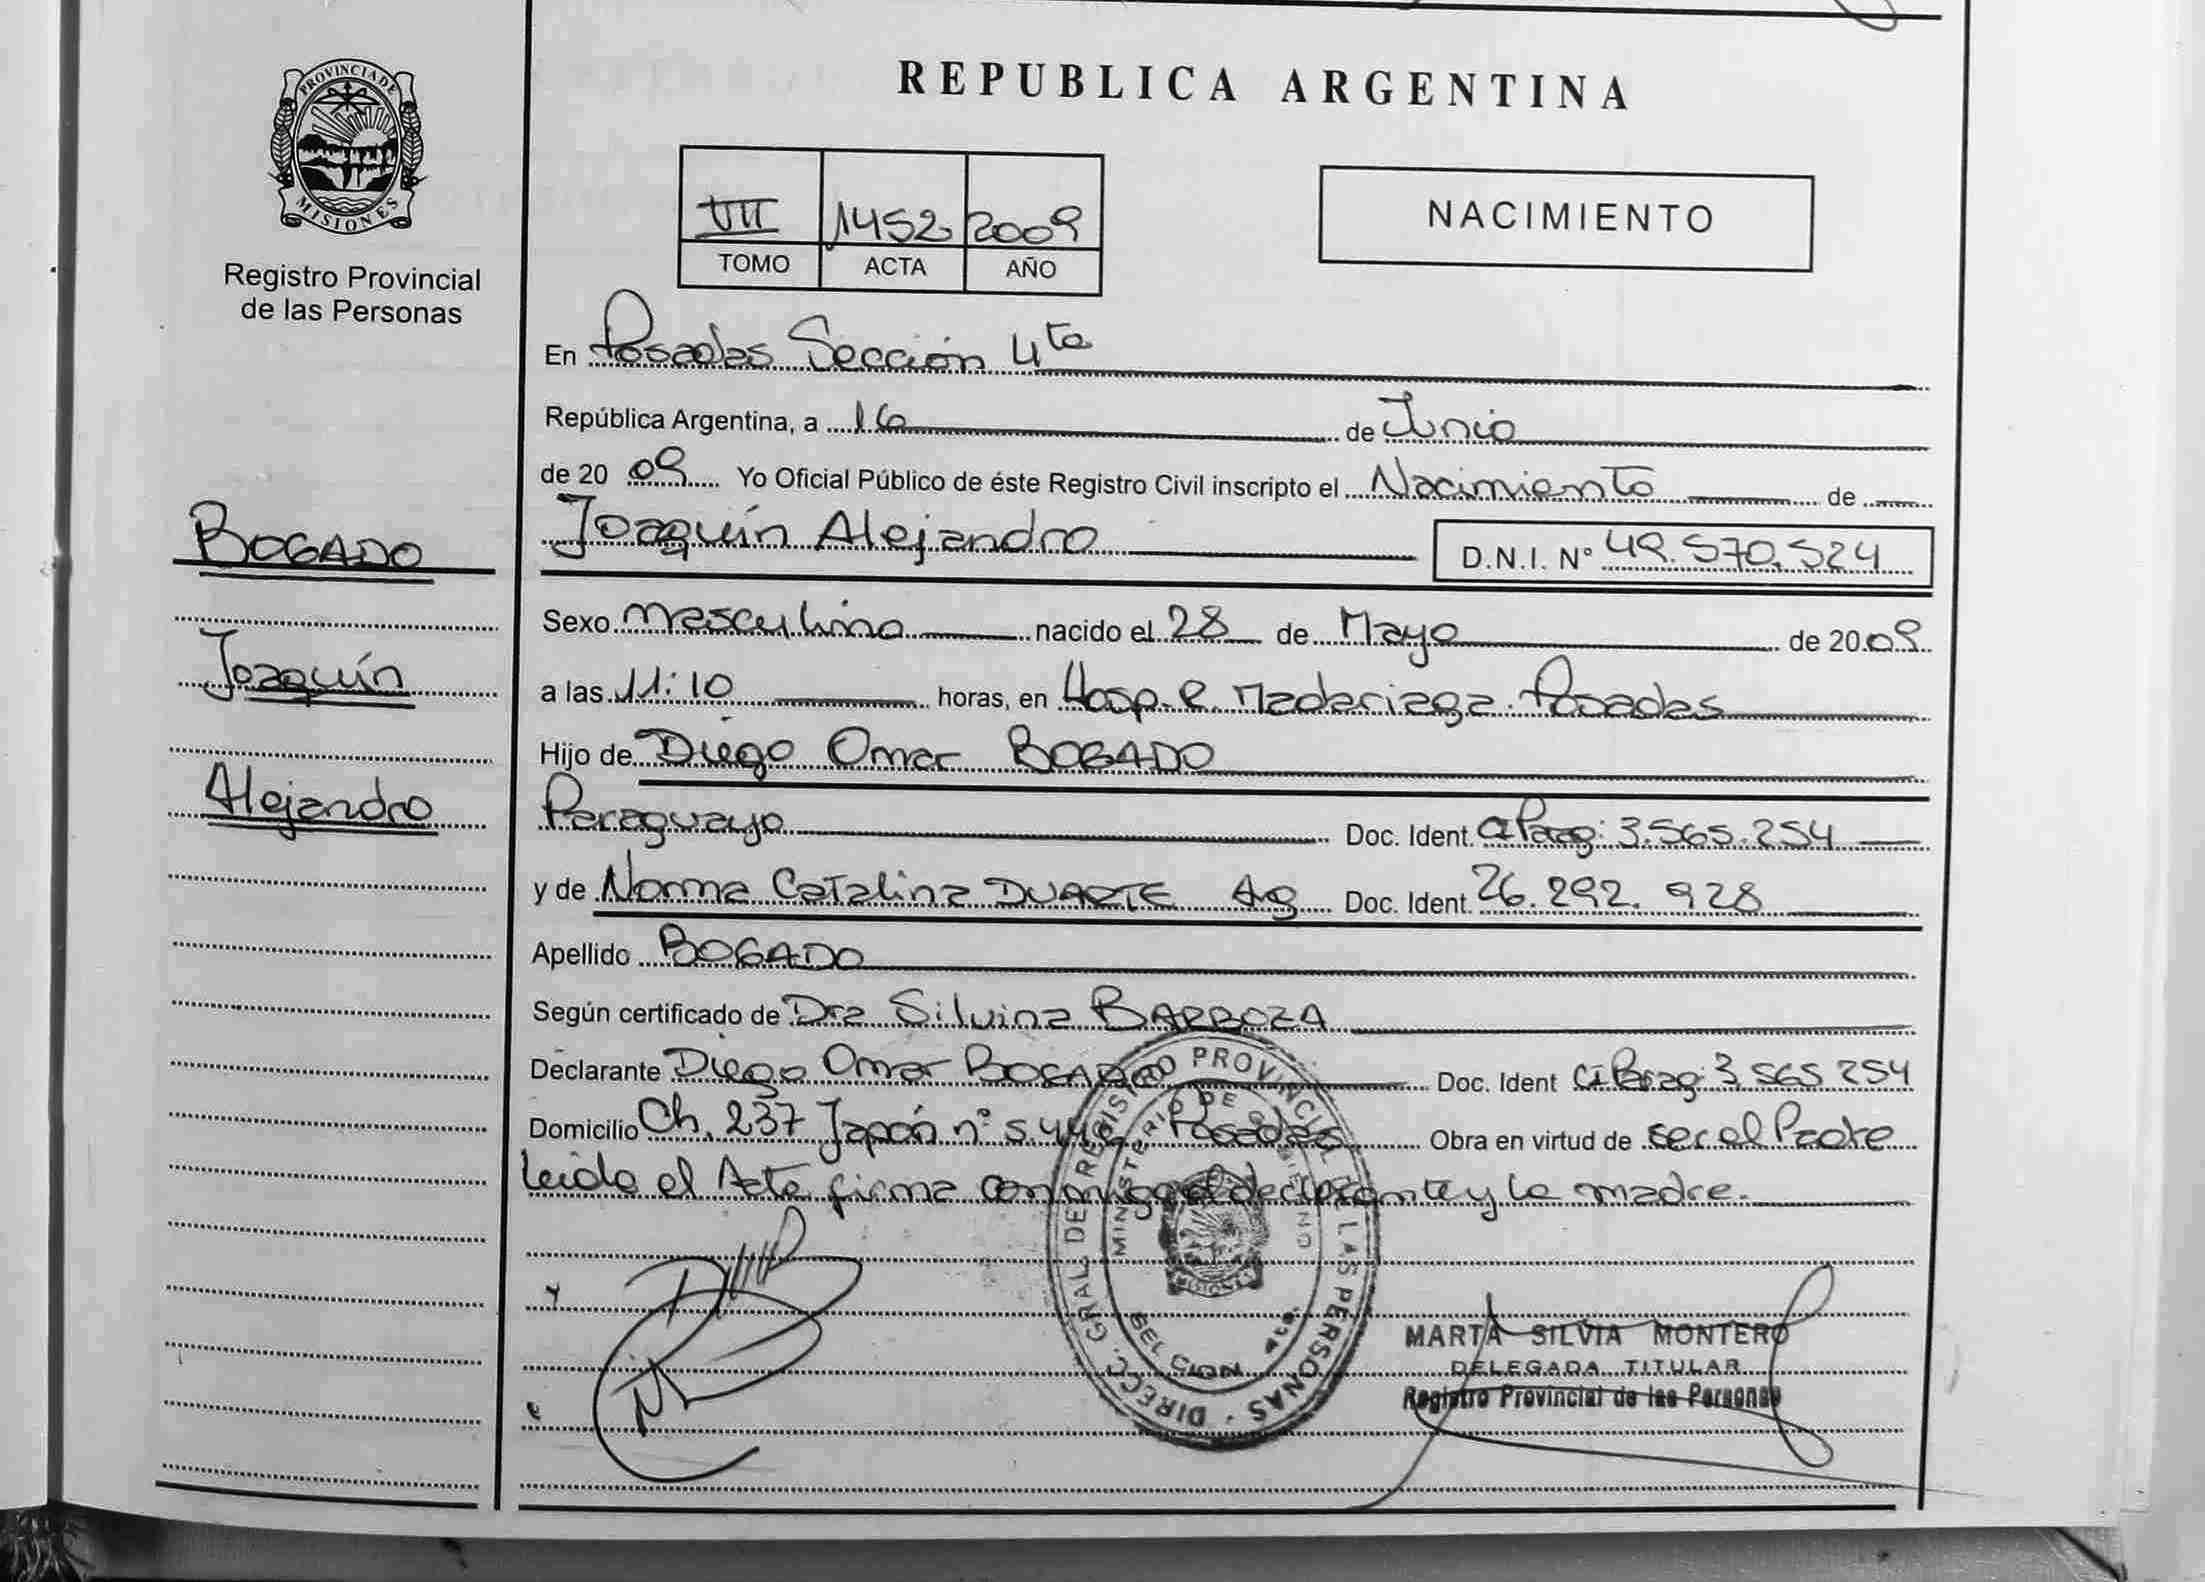 PROVINCIA DE
MISIONES
Registro Provincial
de las Personas
BOGADO
Joaquín
Alejandro
REPUBLICA ARGENTINA
VII 1452 2009
TOMO ACTA AÑO
NACIMIENTO
En Posadas Sección 4ta
República Argentina, a 16 de Junio
de 20 09 Yo Oficial Público de éste Registro Civil inscripto el Nacimiento de
Joaquín Alejandro D.N.I. N° 49.570.524
Sexo Masculino nacido el 28 de Mayo de 20 09
a las 11:10 horas, en Hosp. R. Madariaga. Posadas
Hijo de Diego Omar BOGADO
Paraguayo Doc. Ident. CI Parag: 3.565.254
y de Norma Catalina DUARTE Arg Doc. Ident. 26.292.928
Apellido BOGADO
Según certificado de Dra Silvina BARBOZA
Declarante Diego Omar BOGADO Doc. Ident CI Parag: 3.565.254
Domicilio Ch. 237 Japón n° Posadas Obra en virtud de ser el Padre
Leida el Acta firma conmigo el declarante y la madre.
DIRECC. GRAL. DE REGISTRO PROVINCIAL DE LAS PERSONAS
MINISTERIO DE GOBIERNO
MISIONES
SECCION 4ta.
MARTA SILVIA MONTERO
DELEGADA TITULAR
Registro Provincial de las Personas